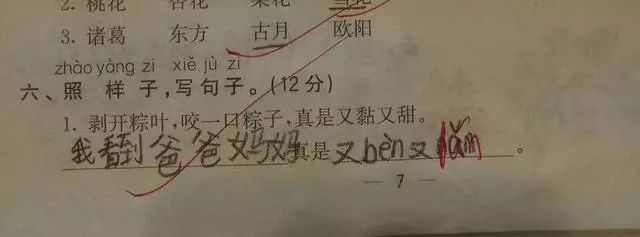 2. 桃花 杏花 梨花
3. 诸葛 东方 古月 欧阳
zhào yàng zi xiě jù zi
六、照 样 子，写句子。(12分)
1. 剥开粽叶，咬一口粽子，真是又黏又甜。
我看到爸爸妈妈真是又bèn又 。
— 7 —